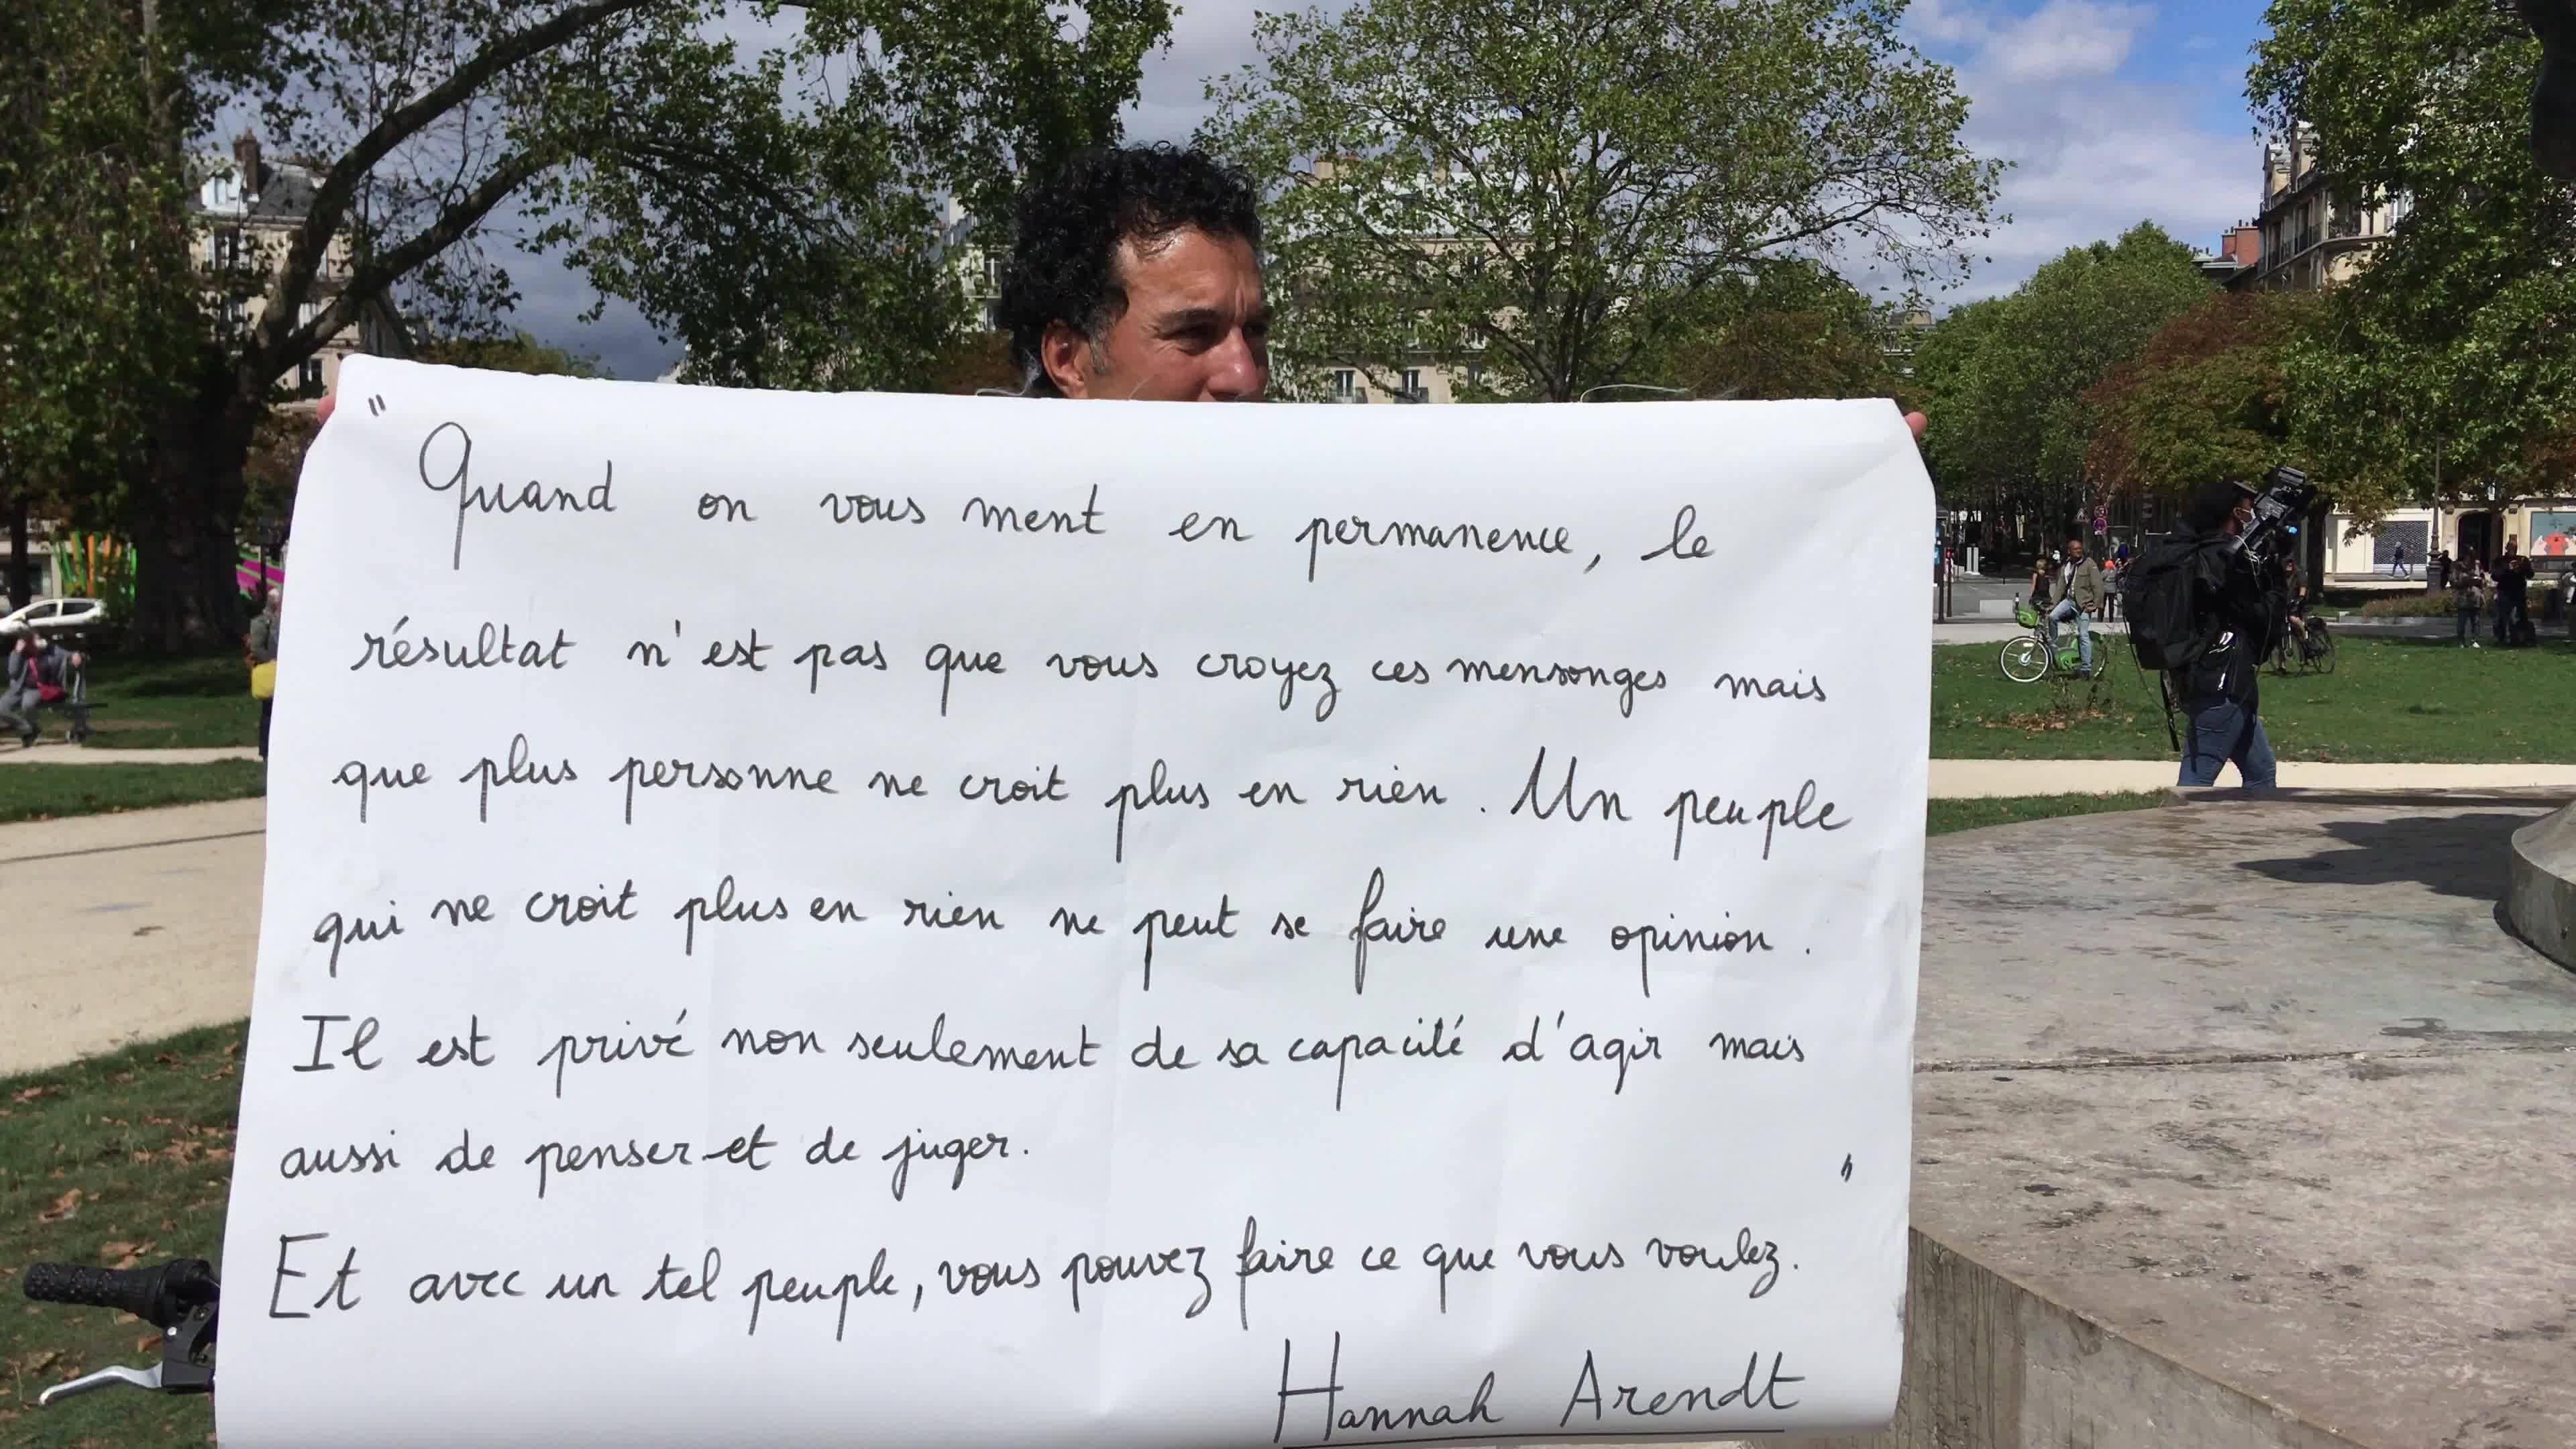 " Quand on vous ment en permanence, le
résultat n'est pas que vous croyez ces mensonges mais
que plus personne ne croit plus en rien. Un peuple
qui ne croit plus en rien ne peut se faire une opinion.
Il est privé non seulement de sa capacité d'agir mais
aussi de penser et de juger. "
Et avec un tel peuple, vous pouvez faire ce que vous voulez.
Hannah Arendt